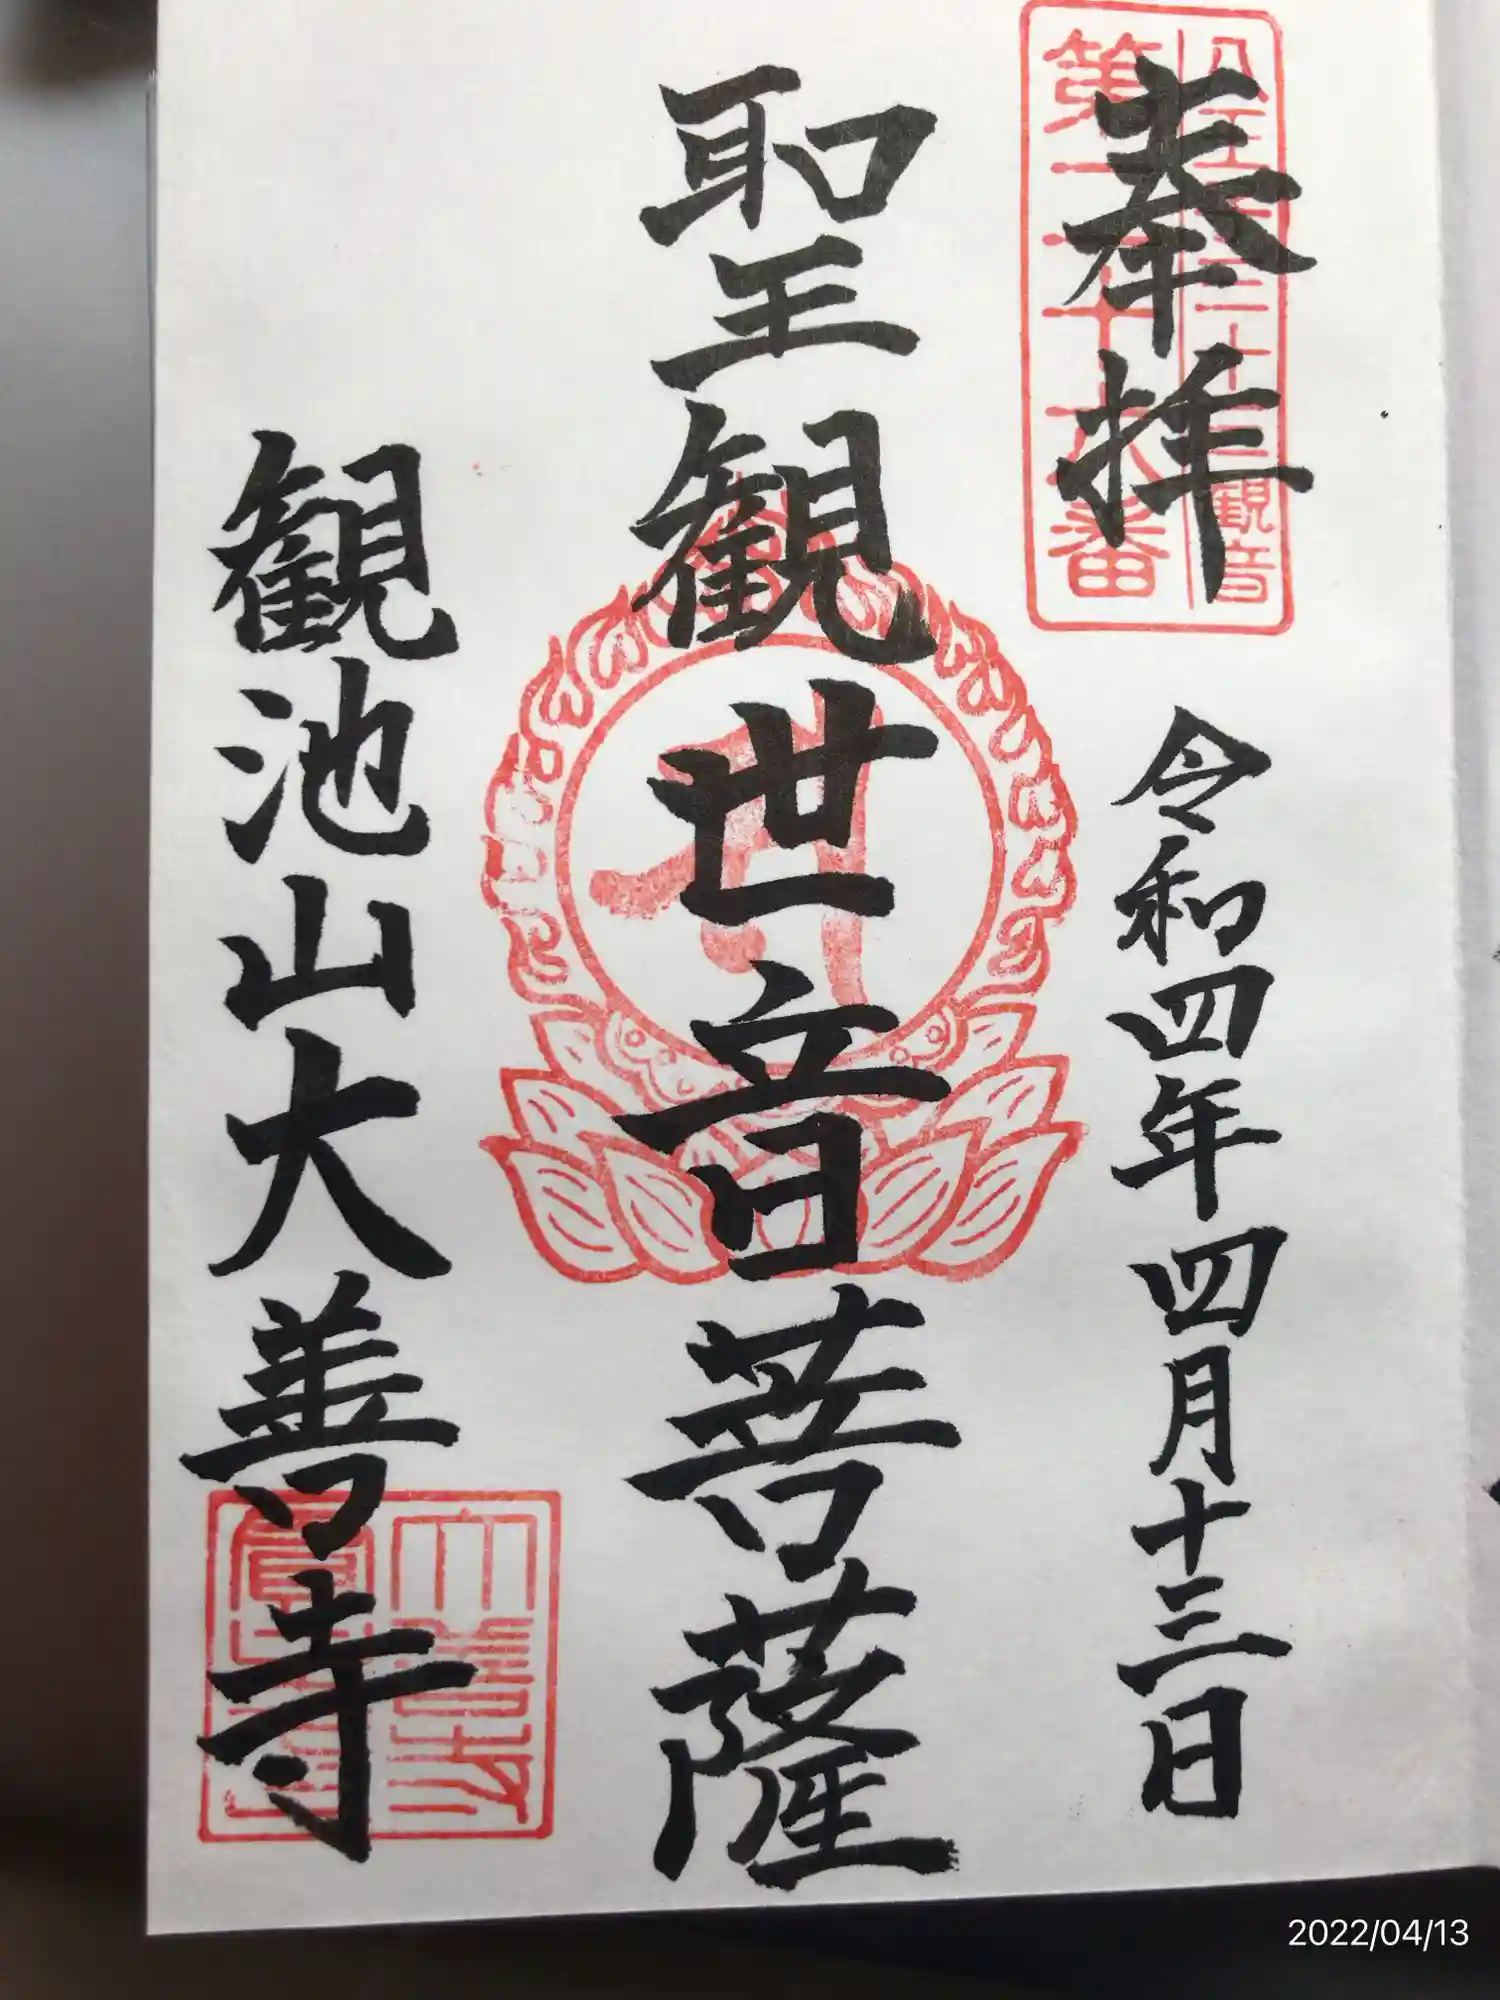 奉拝
令和四年四月十三日
聖観世音菩薩
観池山大善寺
八王子三十三観音
第二十六番
2022/04/13